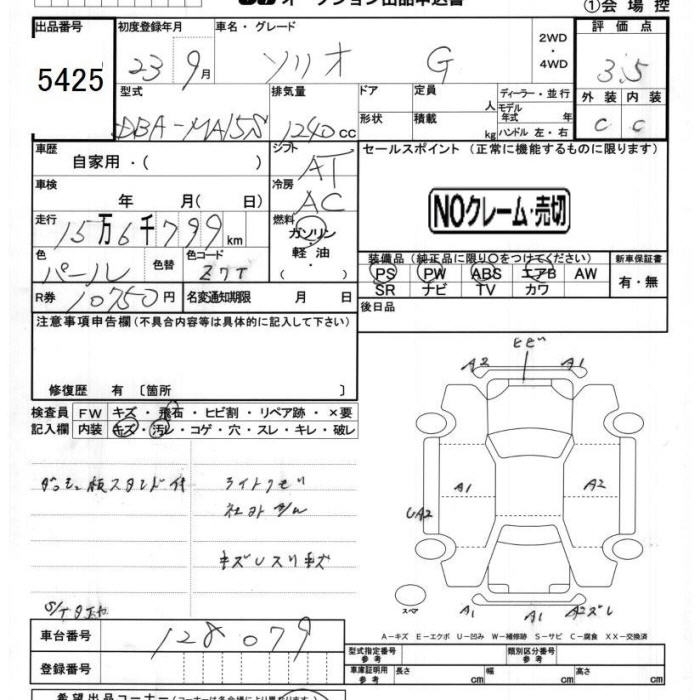 オークション出品申込書
①会場控
出品番号
5425
初度登録年月
23 9月
車名・グレード
ソリオ G
2WD
・
4WD
評価点
3.5
外装 内装
C C
型式
DBA-MA15S
排気量
1240cc
ドア
定員
人
ディーラー・並行
モデル年式 年式
形状
積載
kg
ハンドル 左・右
車歴
自家用・( )
シフト
AT
セールスポイント (正常に機能するものに限ります)
車検
年 月( 日)
冷房
AC
NOクレーム・売切
走行
15万6千799km
燃料
ガソリン
軽油・
( )
色
パール
色替
色コード
Z7T
装備品(純正品に限り○をつけてください)
PS PW ABS エアB AW
SR ナビ TV カワ
新車保証書
有・無
R券
10750円
名変通知期限 月 日
後日品
注意事項申告欄(不具合内容等は具体的に記入して下さい)
修復歴 有 〔箇所 〕
検査員記入欄
FW キズ・飛石・ヒビ割・リペア跡・×要
内装 キズ・汚レ・コゲ・穴・スレ・キレ・破レ
板スタンド付
ライトクモリ
キズUスリキズ
S/Tタイヤ
ヒビ
A2 A1
A1 A2
UA2
スペア
A1 A1 A2ズレ
A-キズ E-エクボ U-凹み W-補修跡 S-サビ C-腐食 XX-交換済
車台番号
128079
登録番号
型式指定番号
参考
類別区分番号
参考
車庫証明用
参考
長さ cm 幅 cm 高さ cm
希望出品コーナー